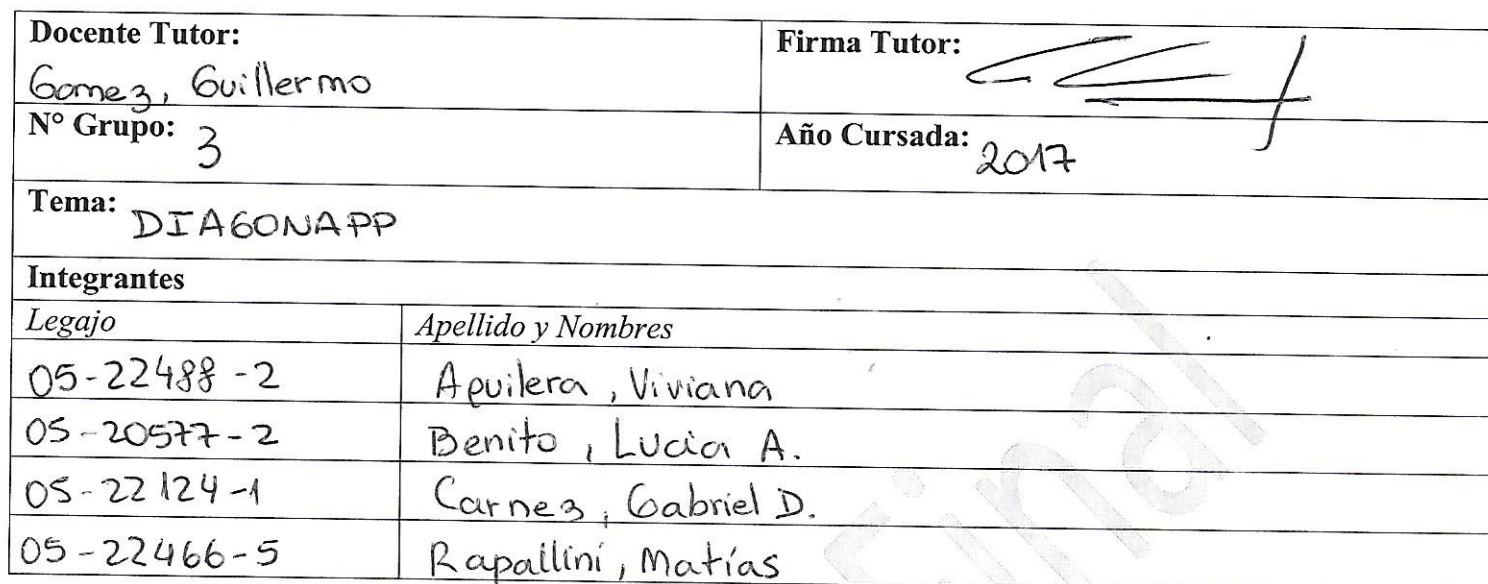 Docente Tutor:
Gomez, Guillermo
Firma Tutor:
N° Grupo: 3
Año Cursada: 2017
Tema: DIAGONAPP
Integrantes
Legajo Apellido y Nombres
05-22488-2 Aguilera, Viviana
05-20577-2 Benito, Lucia A.
05-22124-1 Carnez, Gabriel D.
05-22466-5 Rapallini, Matías
Final